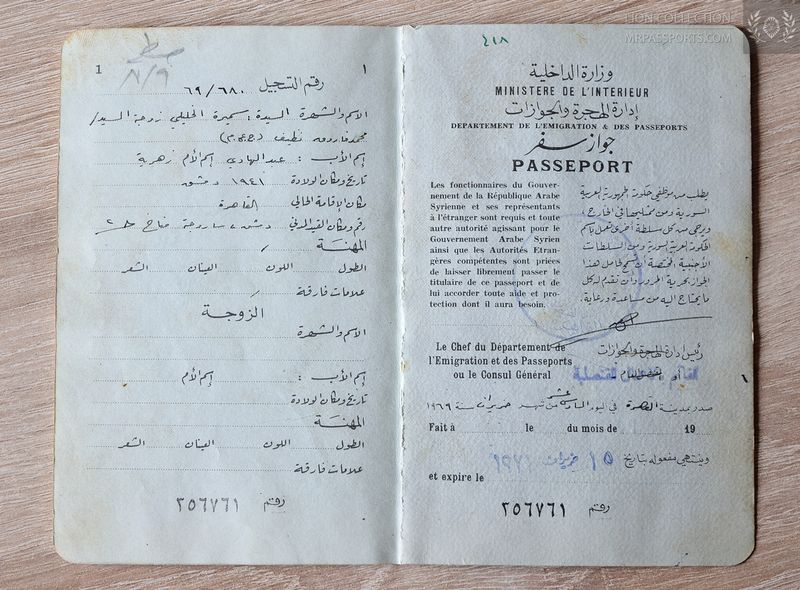 LION COLLECTION
MRPASSPORTS.COM
1
١
رقم التسجيل ٦٩/٦٨٠
الاسم والشهرة السيدة : سميرة الخليلي زوجة السيد/
محمد فاروق نظيف
إسم الأب : عبد الهادي إسم الأم زهرية
تاريخ ومكان الولادة ١٩٤١ دمشق
مكان الإقامة الحالي القاهرة
رقم ومكان القيد المدني دمشق
المهنة /
الطول اللون العينان الشعر
علامات فارقة /
الزوجة
الاسم والشهرة
إسم الأب : إسم الأم
تاريخ ومكان الولادة
المهنة
الطول اللون العينان الشعر
علامات فارقة
رقم ٢٥٦٧٦١
٤١٨
وزارة الداخلية
MINISTERE DE L'INTERIEUR
إدارة الهجرة والجوازات
DEPARTEMENT DE L'EMIGRATION & DES PASSEPORTS
جواز سفر
PASSEPORT
Les fonctionnaires du Gouver-
nement de la République Arabe
Syrienne et ses représentants
à l'étranger sont requis et toute
autre autorité agissant pour le
Gouvernement Arabe Syrien
ainsi que les Autorités Etran-
gères compétentes sont priées
de laisser librement passer le
titulaire de ce passeport et de
lui accorder toute aide et pro-
tection dont il aura besoin.
يطلب من موظفي حكومة الجمهورية العربية
السورية ومن ممثليها في الخارج ،
ويرجى من كل سلطة أخرى تعمل باسم
الحكومة العربية السورية ومن السلطات
الأجنبية المختصة أن تسمح لحامل هذا
الجواز بحرية المرور وأن تقدم له كل
ما يحتاج إليه من مساعدة ورعاية.
Le Chef du Département de
l'Emigration et des Passeports
ou le Consul Général
رئيس إدارة الهجرة والجوازات
أو القنصل العام
صدر بمدينة القاهرة في اليوم السادس عشر من شهر حزيران سنة ١٩٦٩
Fait à le du mois de 19
وينتهي مفعوله بتاريخ ١٥ حزيران ١٩٧١
et expire le
رقم ٢٥٦٧٦١